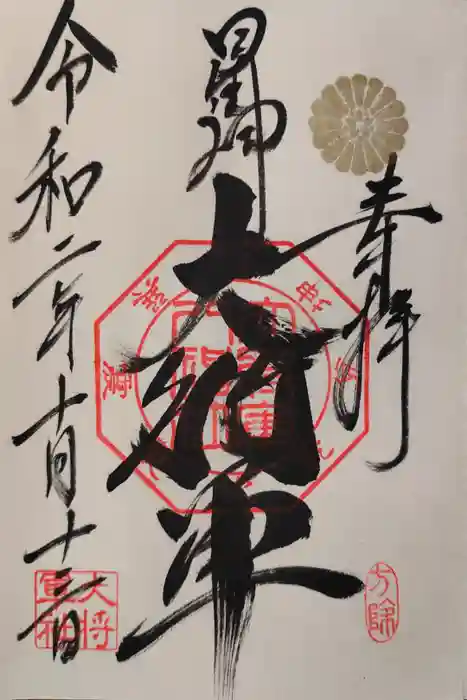 奉拝
星神
大将軍
令和二年十月十三日
方除
大将軍神